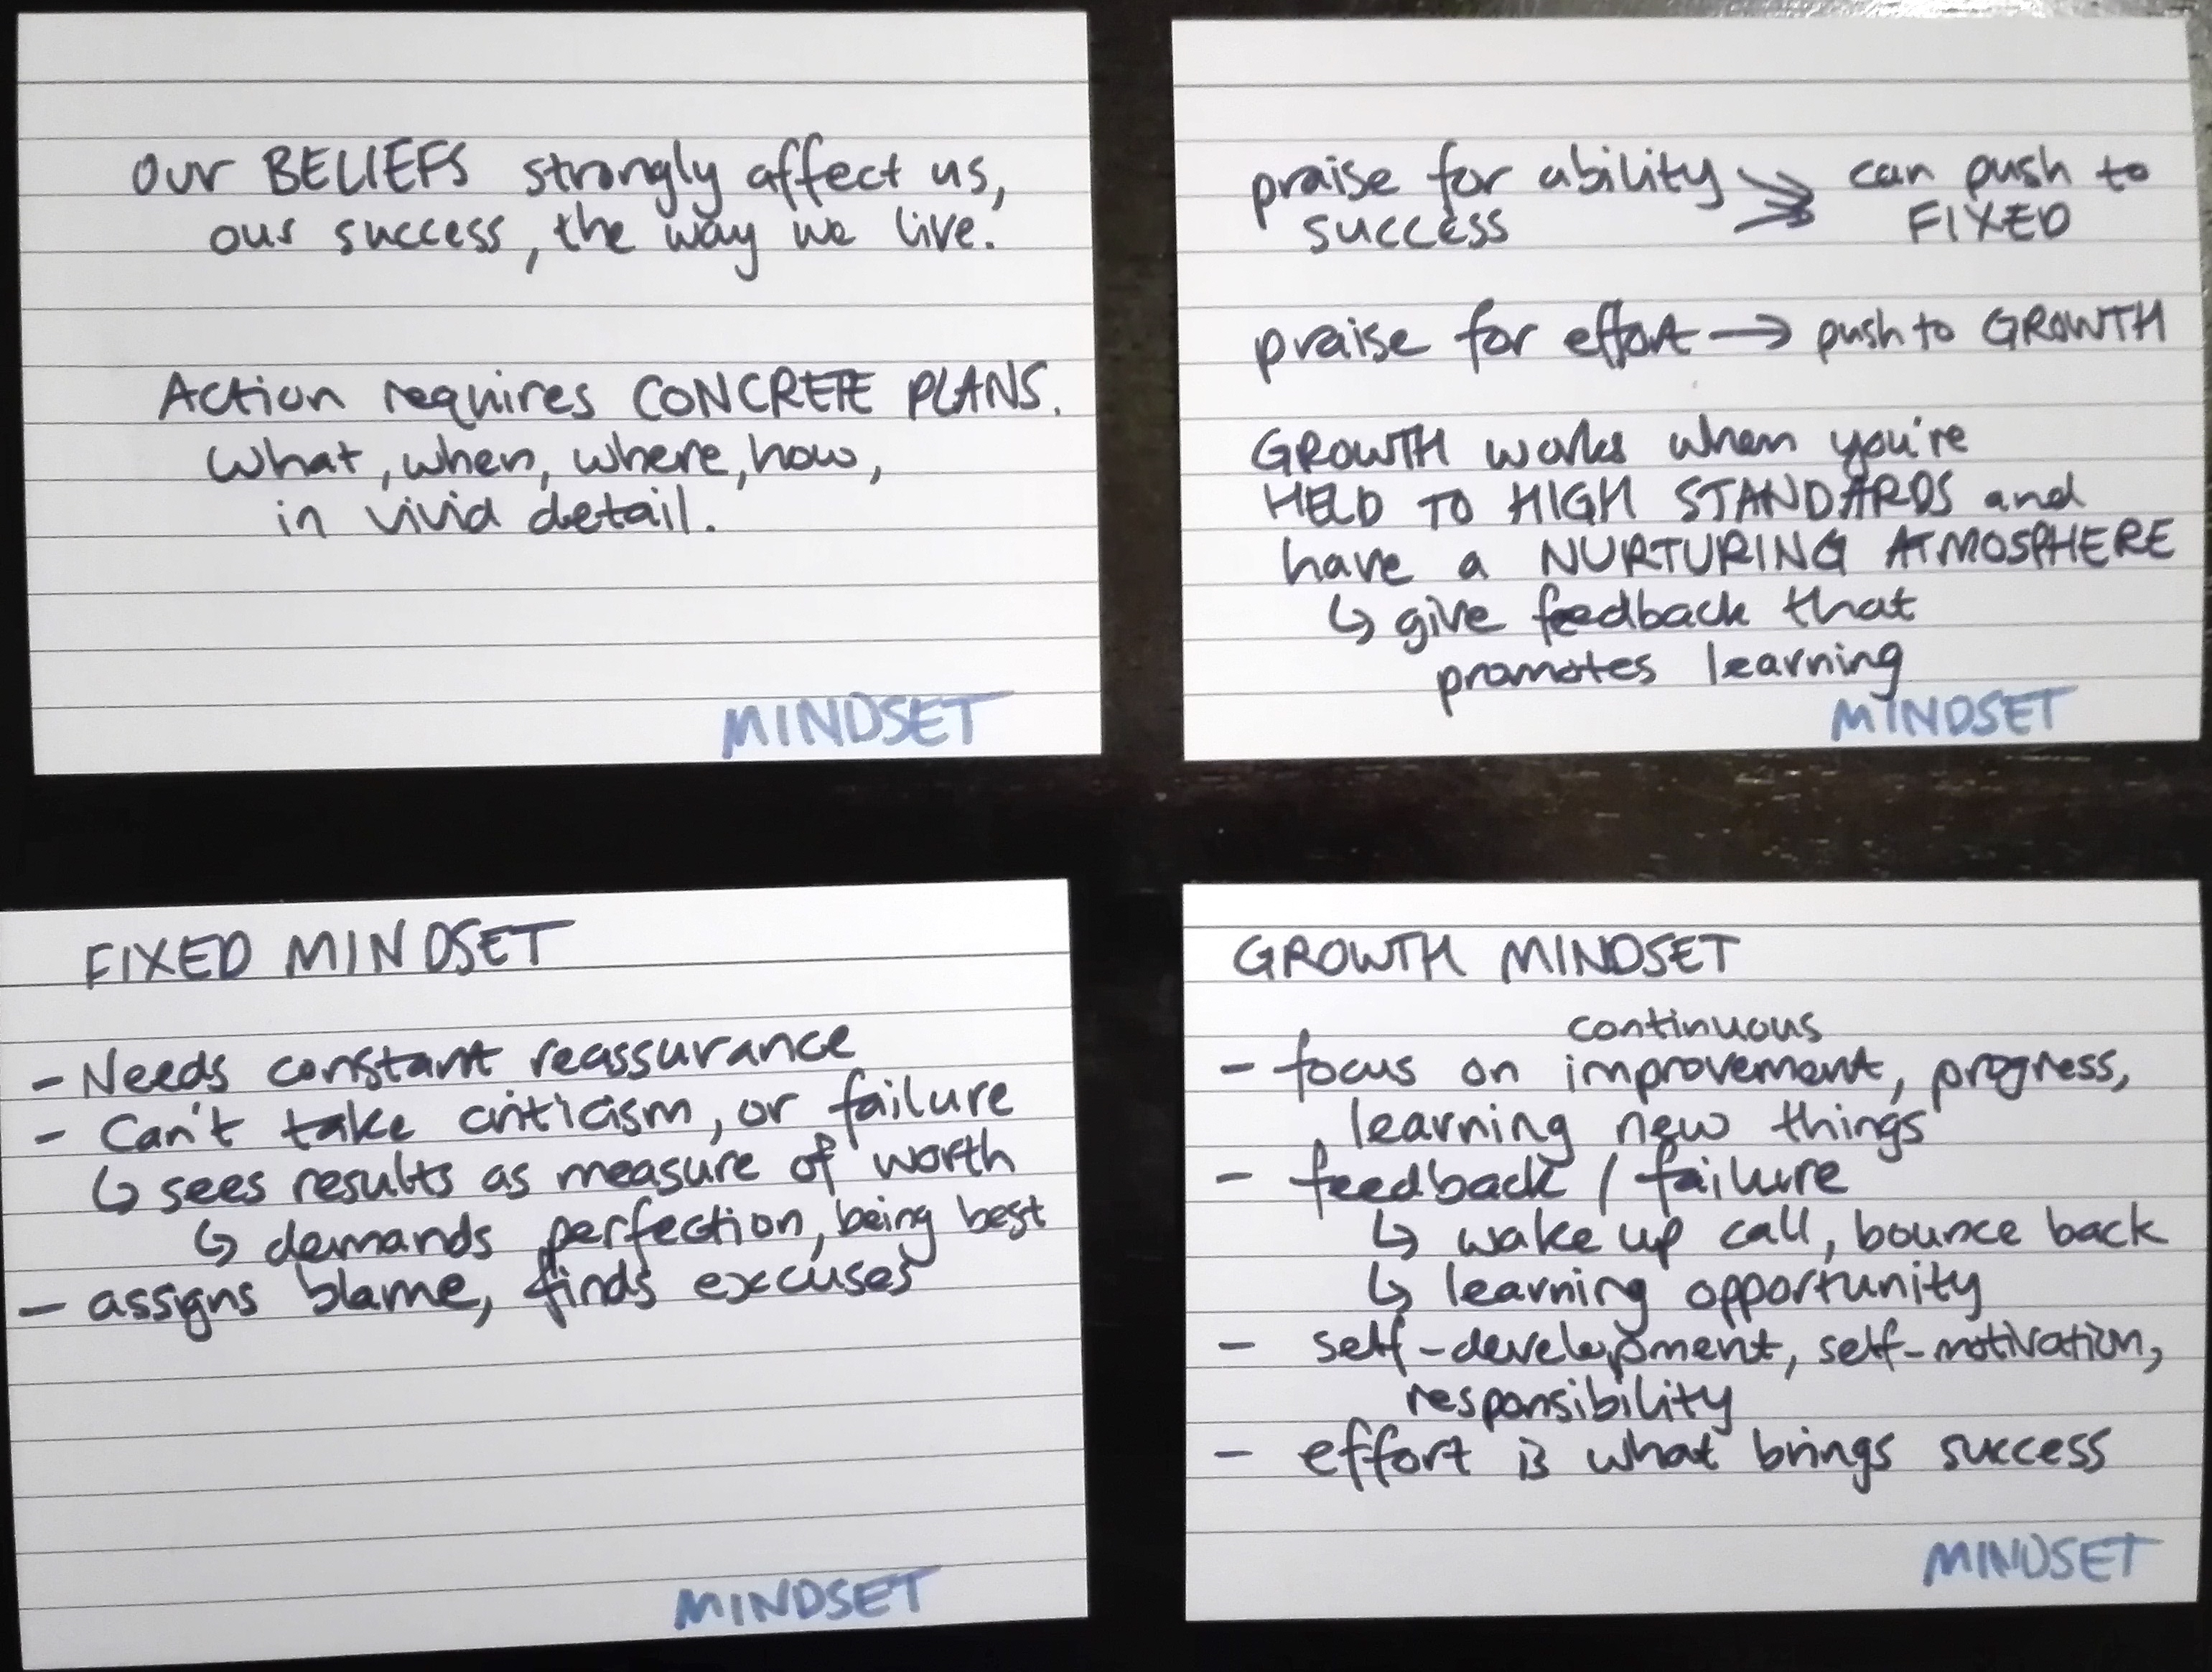 Our BELIEFS strongly affect us,
our success, the way we live.
Action requires CONCRETE PLANS.
What, when, where, how,
in vivid detail.
MINDSET
praise for ability → can push to
success → FIXED
praise for effort → push to GROWTH
GROWTH works when you're
HELD TO HIGH STANDARDS and
have a NURTURING ATMOSPHERE
↳ give feedback that
promotes learning
MINDSET
FIXED MINDSET
- Needs constant reassurance
- Can't take criticism, or failure
↳ sees results as measure of worth
↳ demands perfection, being best
- assigns blame, finds excuses
MINDSET
GROWTH MINDSET
continuous
- focus on improvement, progress,
learning new things
- feedback / failure
↳ wake up call, bounce back
↳ learning opportunity
- self-development, self-motivation,
responsibility
- effort is what brings success
MINDSET